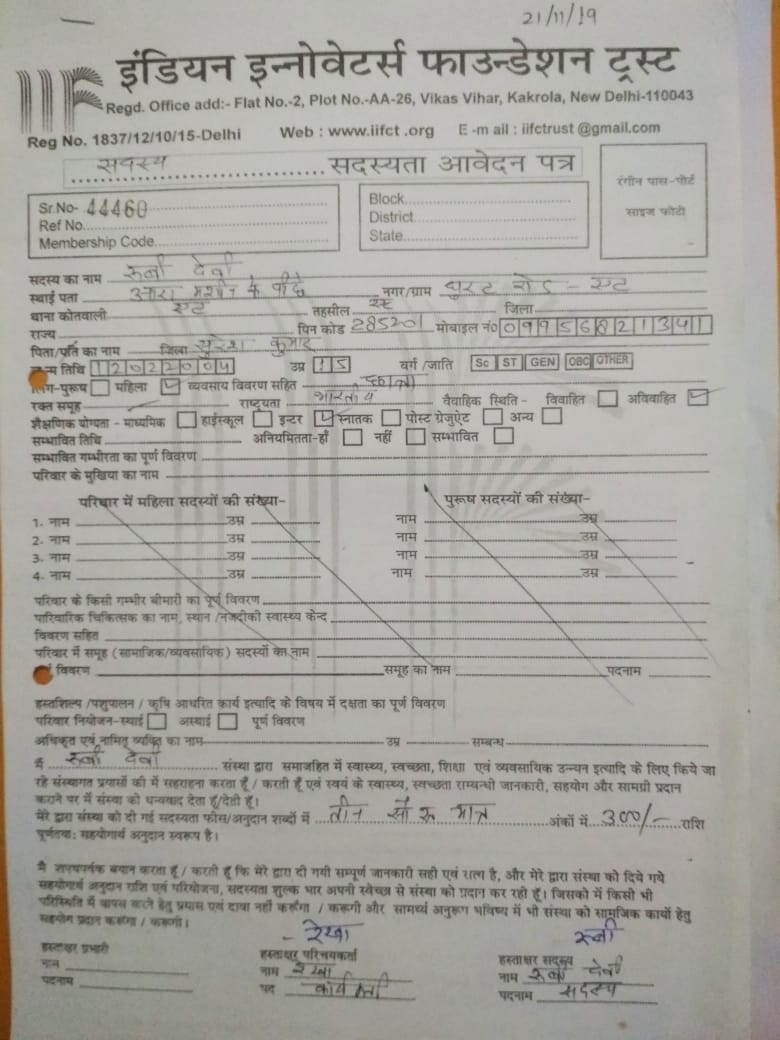 21/11/19
इंडियन इन्नोवेटर्स फाउन्डेशन ट्रस्ट
Regd. Office add:- Flat No.-2, Plot No.-AA-26, Vikas Vihar, Kakrola, New Delhi-110043
Reg No. 1837/12/10/15-Delhi Web : www.iifct .org E -m ail : iifctrust @gmail.com
सदस्य सदस्यता आवेदन पत्र
रंगीन पास-पोर्ट
साइज फोटो
Sr.No- 44460
Ref No.
Membership Code
Block
District
State
सदस्य का नाम रूबी देवी
स्थाई पता आरा मशीन के पीछे नगर/ग्राम चुरट रोड - एट
थाना कोतवाली एट तहसील एट जिला
राज्य पिन कोड 285201 मोबाइल नं० 09956821341
पिता/पति का नाम जिला सुरेश कुमार
जन्म तिथि 12022004 उम्र 15 वर्ग /जाति Sc ST GEN OBC OTHER
लिंग-पुरूष महिला व्यवसाय विवरण सहित छात्रा
रक्त समूह राष्ट्रीयता भारतीय वैवाहिक स्थिति - विवाहित अविवाहित
शैक्षणिक योग्यता - माध्यमिक हाईस्कूल इन्टर स्नातक पोस्ट ग्रेजुऐट अन्य
सम्भावित तिथि अनियमितता-हाँ नहीं सम्भावित
सम्भावित गम्भीरता का पूर्ण विवरण
परिवार के मुखिया का नाम
परिवार में महिला सदस्यों की संख्या- पुरूष सदस्यों की संख्या-
1. नाम उम्र नाम उम्र
2. नाम उम्र नाम उम्र
3. नाम उम्र नाम उम्र
4. नाम उम्र नाम उम्र
परिवार के किसी गम्भीर बीमारी का पूर्ण विवरण
पारिवारिक चिकित्सक का नाम, स्थान / नजदीकी स्वास्थ्य केन्द
विवरण सहित
परिवार में समूह (सामाजिक/व्यवसायिक) सदस्यों का नाम
विवरण समूह का नाम पदनाम
हस्तशिल्प /पशुपालन / कृषि आधरित कार्य इत्यादि के विषय में दक्षता का पूर्ण विवरण
परिवार नियोजन-स्थाई अस्थाई पूर्ण विवरण
अधिकृत एवं नामित व्यक्ति का नाम उम्र सम्बन्ध
मैं रूबी देवी संस्था द्वारा समाजहित में स्वास्थ्य, स्वच्छता, शिक्षा एवं व्यवसायिक उन्नयन इत्यादि के लिए किये जा
रहे संस्थागत प्रयासों की में सहराहना करता हूँ / करती हूँ एवं स्वयं के स्वास्थ्य, स्वच्छता सम्बन्धी जानकारी, सहयोग और सामग्री प्रदान
कराने पर में संस्था को धन्यवाद देता हूँ/देती हूँ।
मेरे द्वारा संस्था को दी गई सदस्यता फीस/अनुदान शब्दों में तीन सौ रू मात्र अंकों में 300/- राशि
पूर्णतयाः सहयोगार्थ अनुदान स्वरूप है।
मैं शपथपूर्वक बयान करता हूँ / करती हूँ कि मेरे द्वारा दी गयी सम्पूर्ण जानकारी सही एवं सत्य है, और मेरे द्वारा संस्था को दिये गये
सहयोगार्थ अनुदान राशि एवं परियोजना, सदस्यता शुल्क भार अपनी स्वेच्छा से संस्था को प्रदान कर रही हूँ। जिसको में किसी भी
परिस्थिति में वापस करने हेतु प्रयास एवं दावा नहीं करूँगा / करूगी और सामर्थ्य अनुरूप भविष्य में भी संस्था को सामजिक कार्यो हेतु
सहयोग प्रदान करूंगा / करूगी।
रेखा रूबी
हस्ताक्षर प्रभारी हस्ताक्षर परिचयकर्ता हस्ताक्षर सदस्य
नाम नाम रेखा नाम रूबी देवी
पदनाम पद पदनाम सदस्य